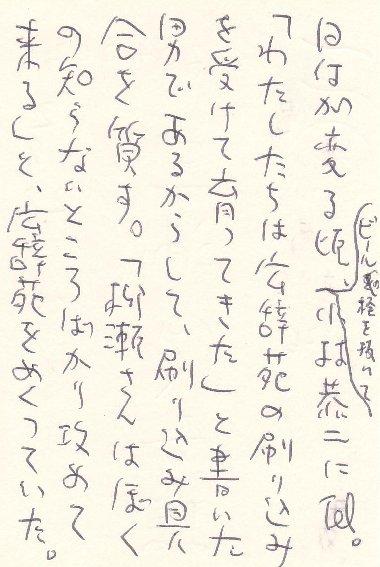 ビール栓を抜いて
日付が変る頃、小林恭二にTel。
「わたしたちは広辞苑の刷り込み
を受けて育ってきた」と書いた
男であるからして、刷り込み具
合を質す。「柳瀬さんはぼく
の知らないところばかり攻めて
来る」と、広辞苑をめくっていた。